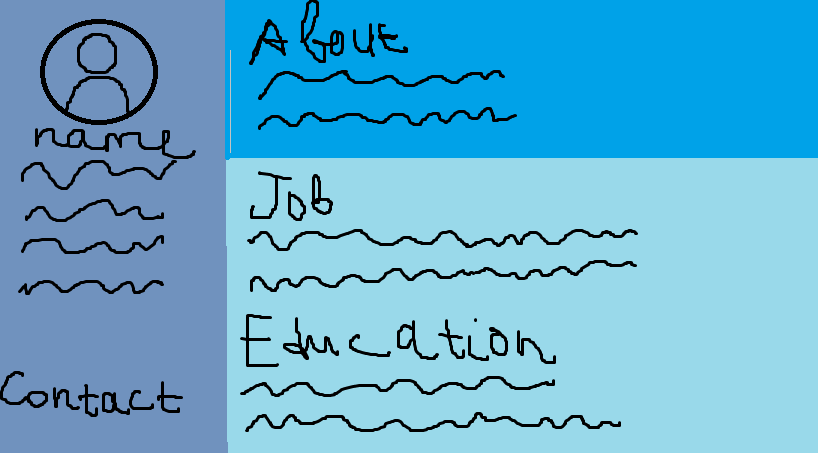 name
Contact
About
Job
Education